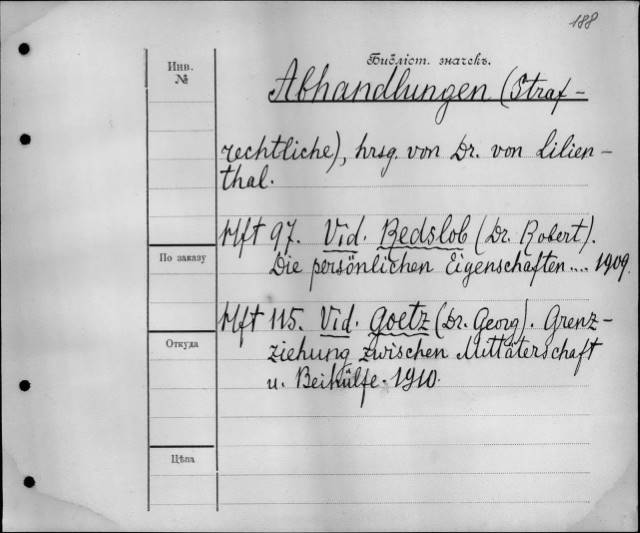 188
Инв.
№
Библіот. значекъ.
Abhandlungen (Straf-
rechtliche), hrsg. von Dr. von Lilien-
thal.
Hft 97. Vid. Redslob (Dr. Robert).
По заказу
Die persönlichen Eigenschaften.... 1909.
Hft 115. Vid. Goetz (Dr. Georg). Grenz-
Откуда
ziehung zwischen Mittäterschaft
u. Beihülfe. 1910.
Цѣна